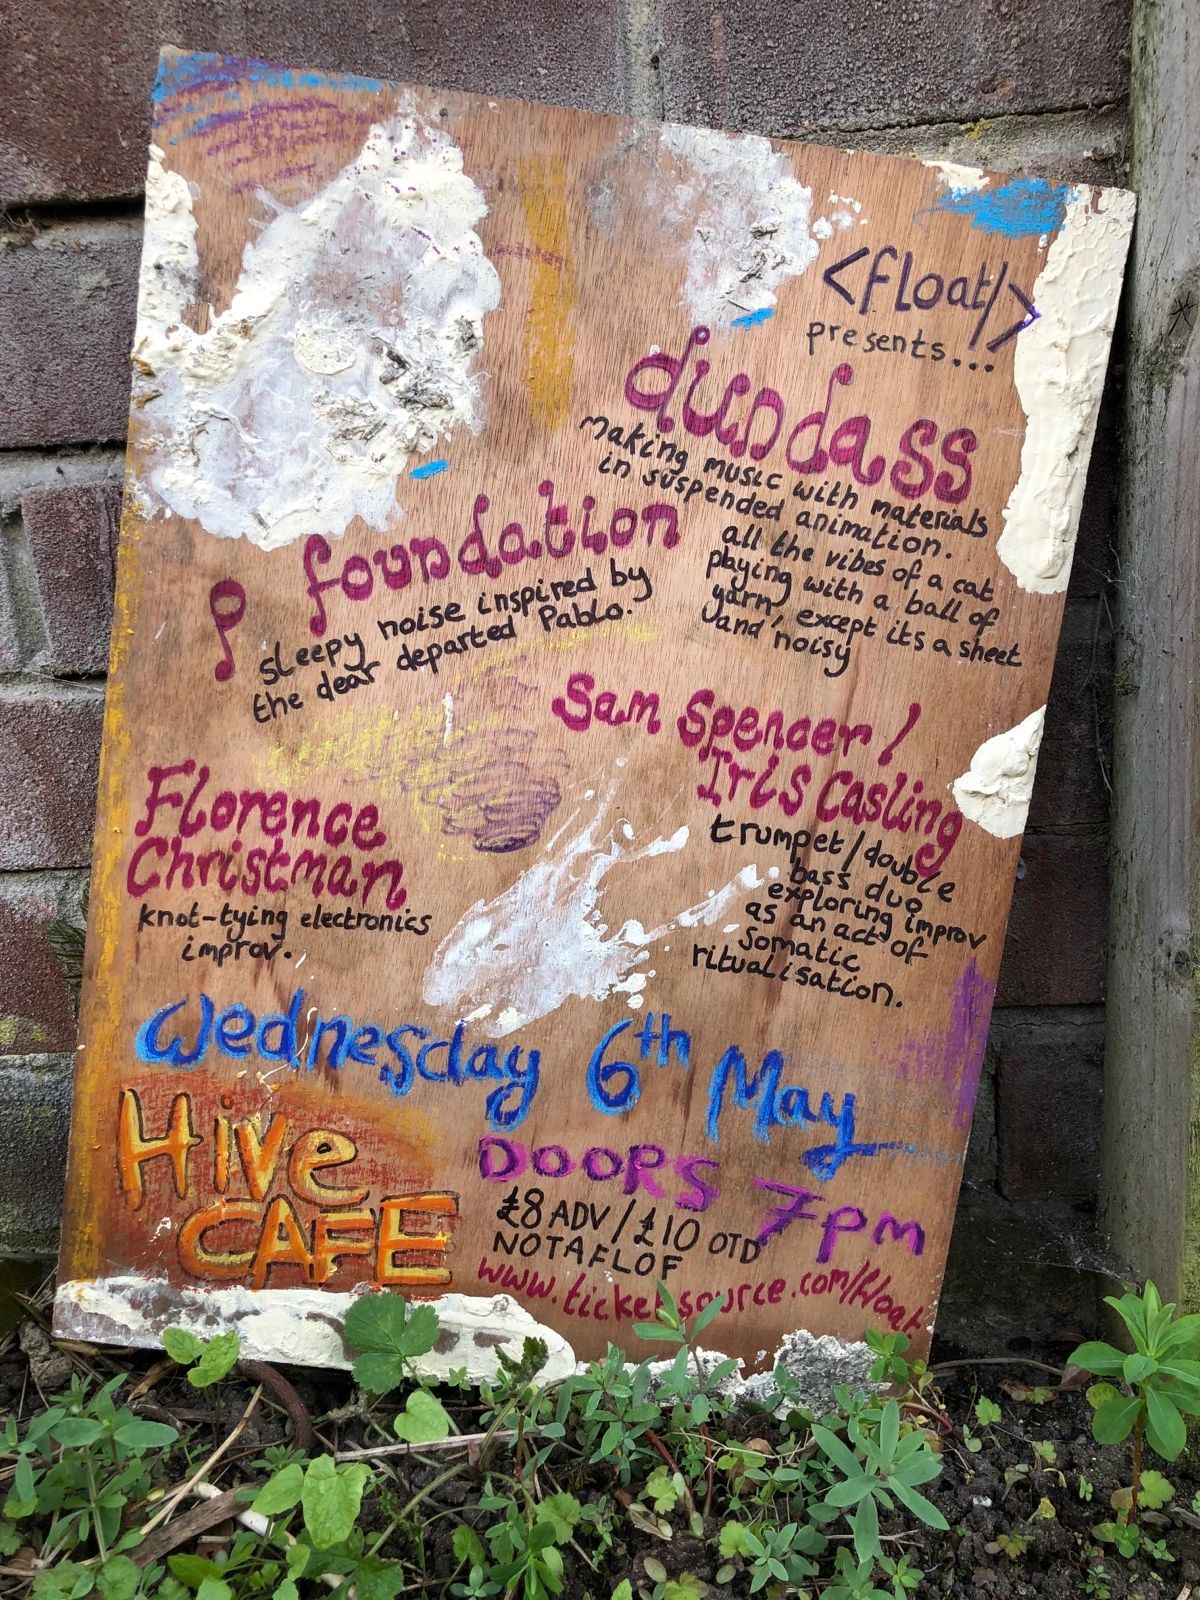 <float/>
presents...
dundass
making music with materials
in suspended animation.
all the vibes of a cat
playing with a ball of
yarn, except its a sheet
and noisy
p foundation
sleepy noise inspired by
the dear departed Pablo.
Sam Spencer /
Iris Casling
trumpet/double
bass duo
exploring improv
as an act of
somatic
ritualisation.
Florence
Christman
knot-tying electronics
improv.
Wednesday 6th May
Hive
CAFE
DOORS 7pm
£8 ADV / £10 OTD
NOTAFLOF
www.ticketsource.com/float